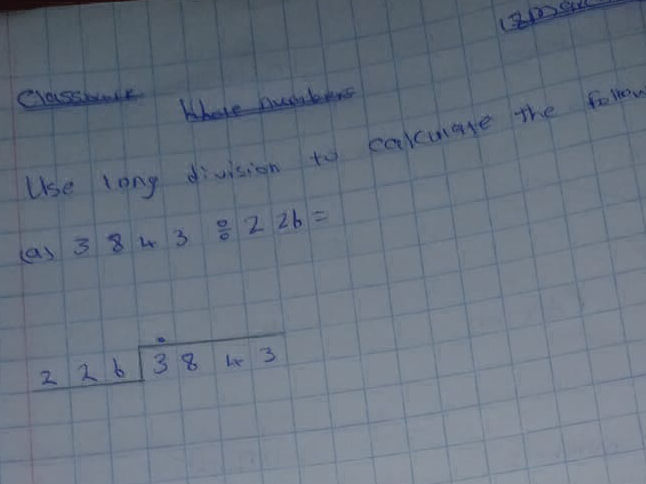 Classwork
Whole numbers
Use long division to calculate the follow
(a) 3 8 4 3 ÷ 2 26 =
2 2 6 3 8 4 3